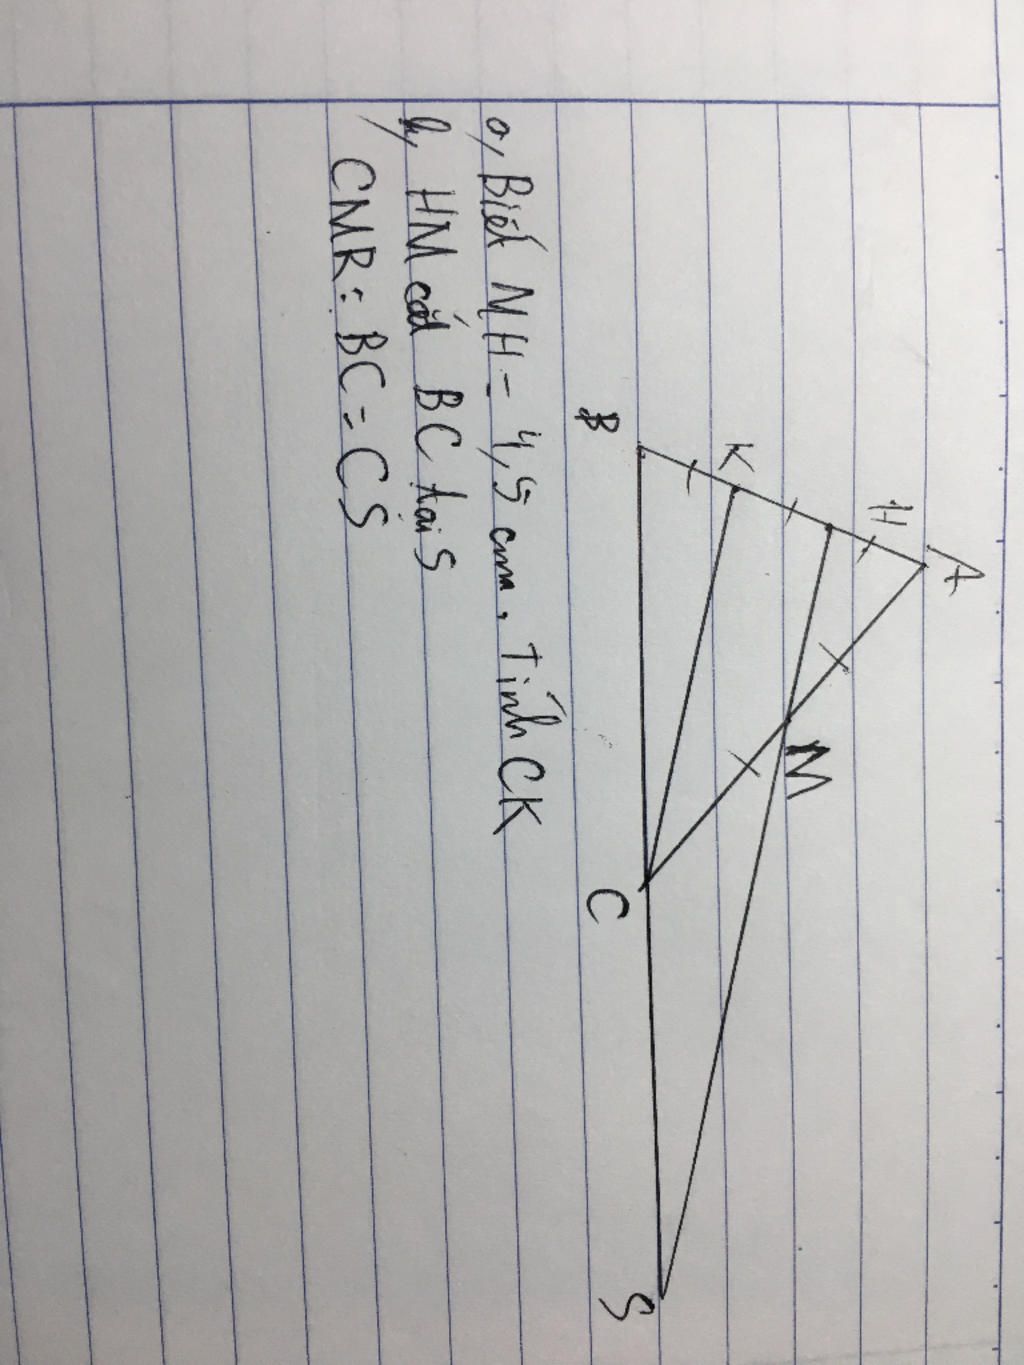 A
H
K
M
B
C
S
a, Biết MH = 4,5 cm. Tính CK
b, HM cắt BC tại S
CMR: BC = CS